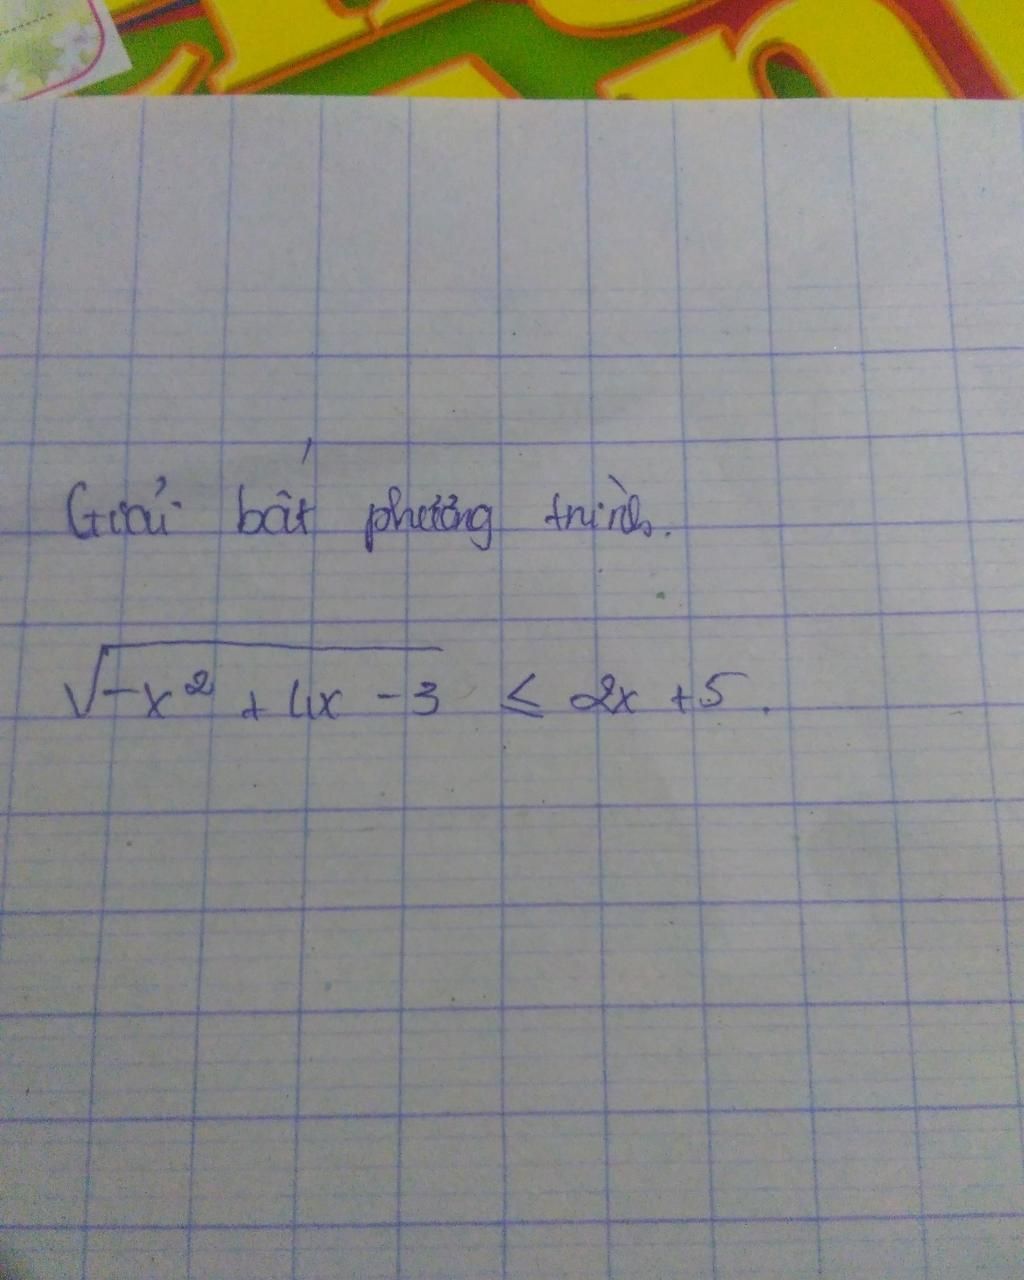 Giải bất phương trình.
√-x² + 4x - 3 ≤ 2x + 5.